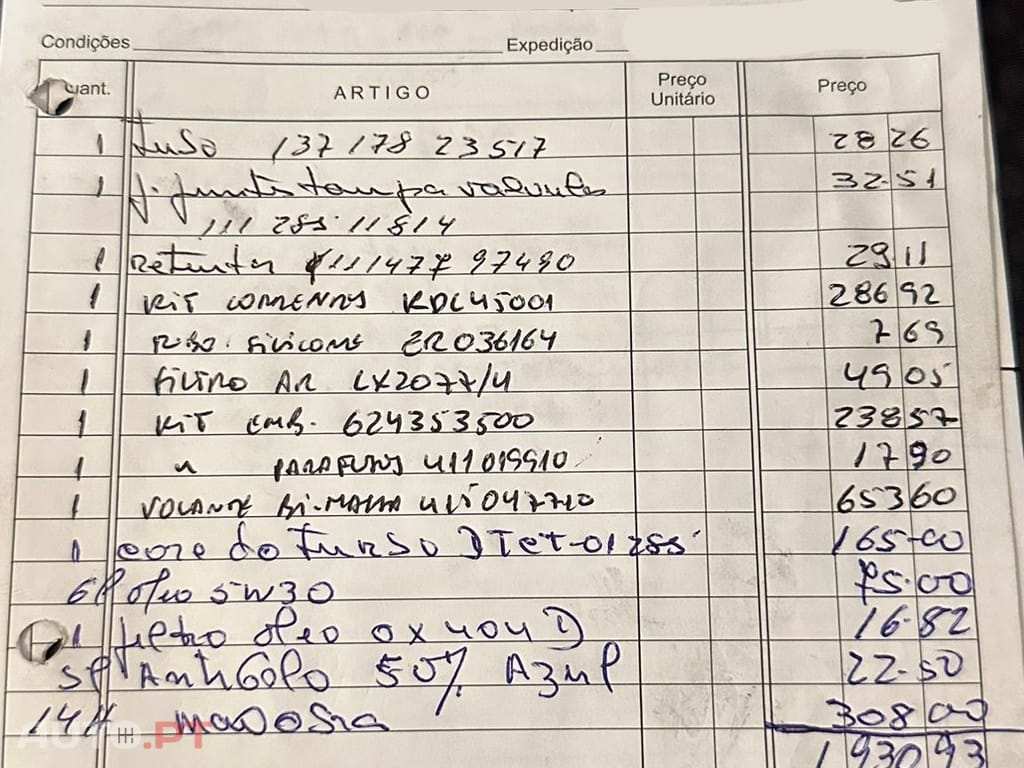 Condições Expedição
Quant. ARTIGO Preço Unitário Preço
1 Tubo 137 178 23517 28 26
1 J. juntas tampa valvulas 32.51
111 285 11814
1 Retentor 111477 97490 29 11
1 KIT CORRENTES KDC45001 286 92
1 SILICONE ER036164 7 69
1 FILTRO AR LX2077/4 49 05
1 KIT EMB. 624353500 238 57
1 " PARAFUSOS 411019910 17 90
1 VOLANTE BI-MASSA 415047710 653 60
1 core do Turbo 165-00
6l Oleo 5W30 75.00
1 filtro oleo OX404D 16.82
5l AntiGelo 50% Azul 22.50
14H maoobra 308 00
1 930 93
AUTO.PT